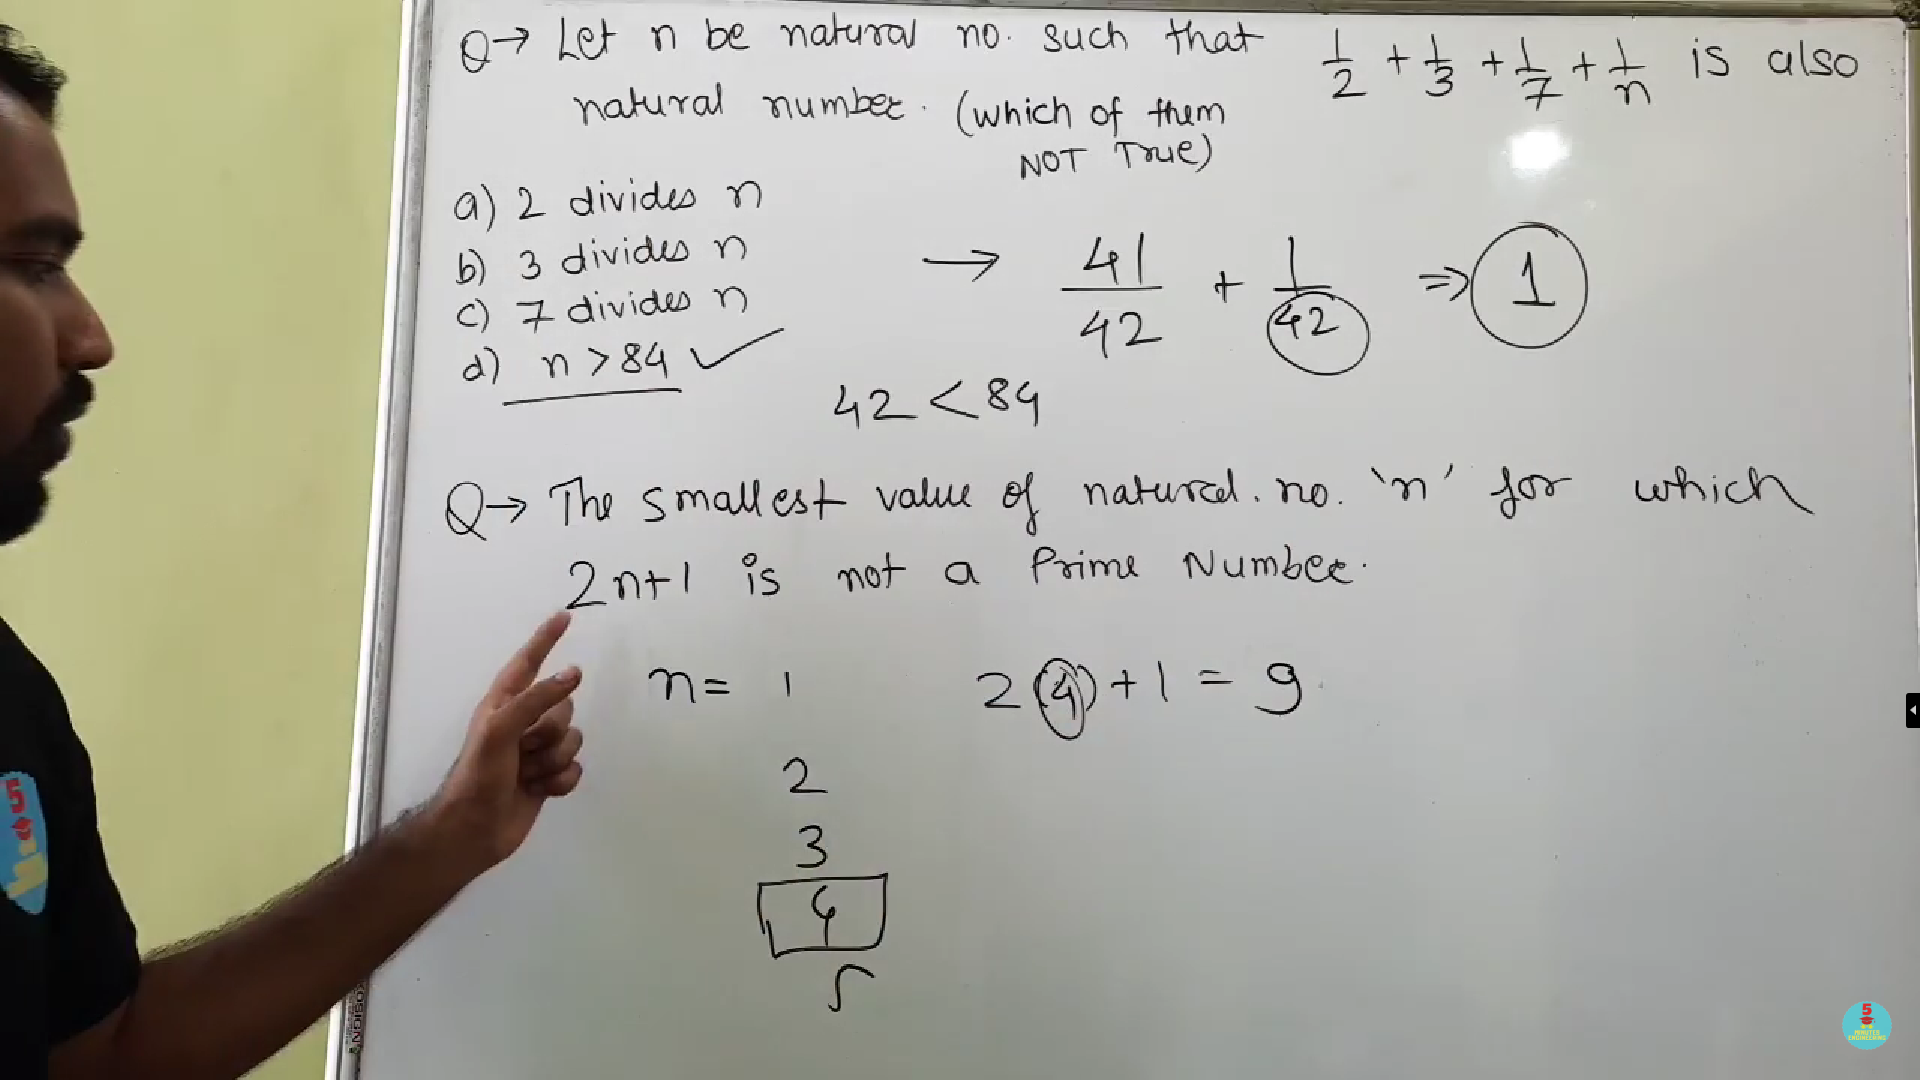 Q→ Let n be natural no. such that 1/2 + 1/3 + 1/7 + 1/n is also
natural number. (which of them
NOT True)
a) 2 divides n
b) 3 divides n
c) 7 divides n
d) n > 84 ✓
→ 41/42 + 1/42 ⇒ 1
42 < 84
Q→ The smallest value of natural. no. 'n' for which
2n+1 is not a Prime Number.
n = 1
2(4) + 1 = 9
2
3
4
5
5
5
MINUTES
ENGINEERING